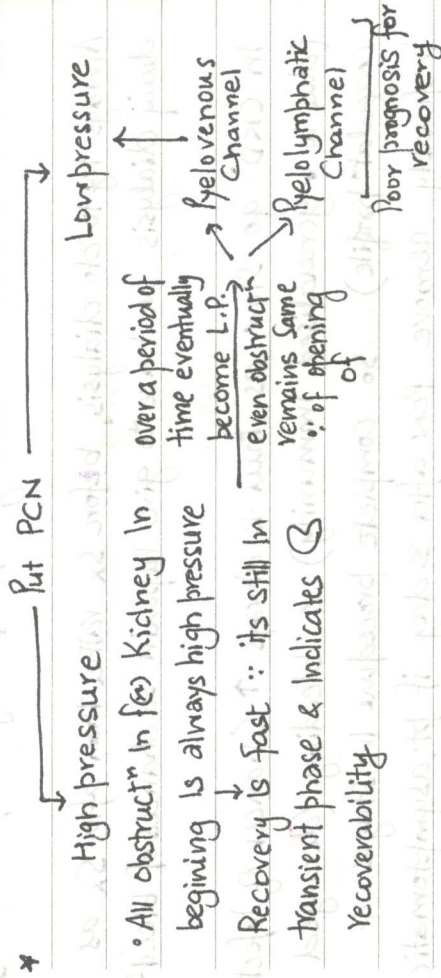 * Put PCN
High pressure
Low pressure
• All obstructⁿ In f(~) Kidney In
begining Is always high pressure
Recovery Is fast ∵ its still In
transient phase & Indicates
recoverability
over a period of
time eventually
become L.P.
even obstructⁿ
remains Same
∵ of opening
of
Pyelovenous
Channel
Pyelolymphatic
Channel
Poor prognosis for
recovery